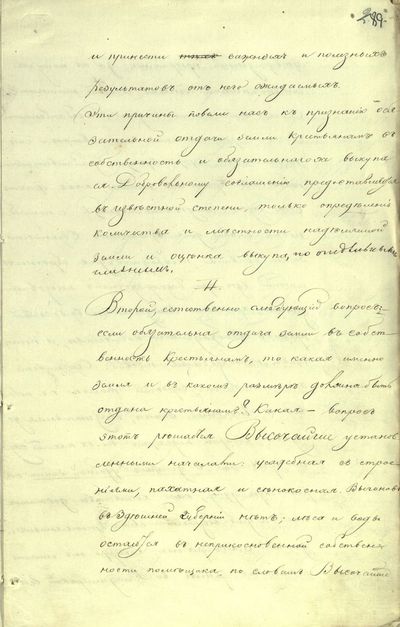 89.
и принести важныхъ и полезныхъ
результатовъ отъ него ожидаемыхъ.
Эти причины повели насъ къ признанію обя
зательной отдачи земли крестьянамъ въ
собственность и обязательнаго за выкупа
ея. Добровольному соглашенію предоставляется
въ извѣстной степени, только опредѣленіе
количества и мѣстности надѣляемой
земли и оцѣнка выкупа, по
4.
Второй, естественно слѣдующій вопросъ:
если обязательна отдача земли въ собст-
венность крестьянамъ, то какая именно
земля и въ какомъ размѣрѣ должна быть
отдана крестьянамъ? Какая – вопросъ
этотъ рѣшается Высочайше установ
ленными началами: усадебная съ строе-
ніями, пахатная и сѣнокосная. Выгоновъ
въ здѣшней Губерніи нѣтъ; лѣса и воды
остаются въ неприкосновенной собствен-
ности помѣщика, по словамъ Высочайше